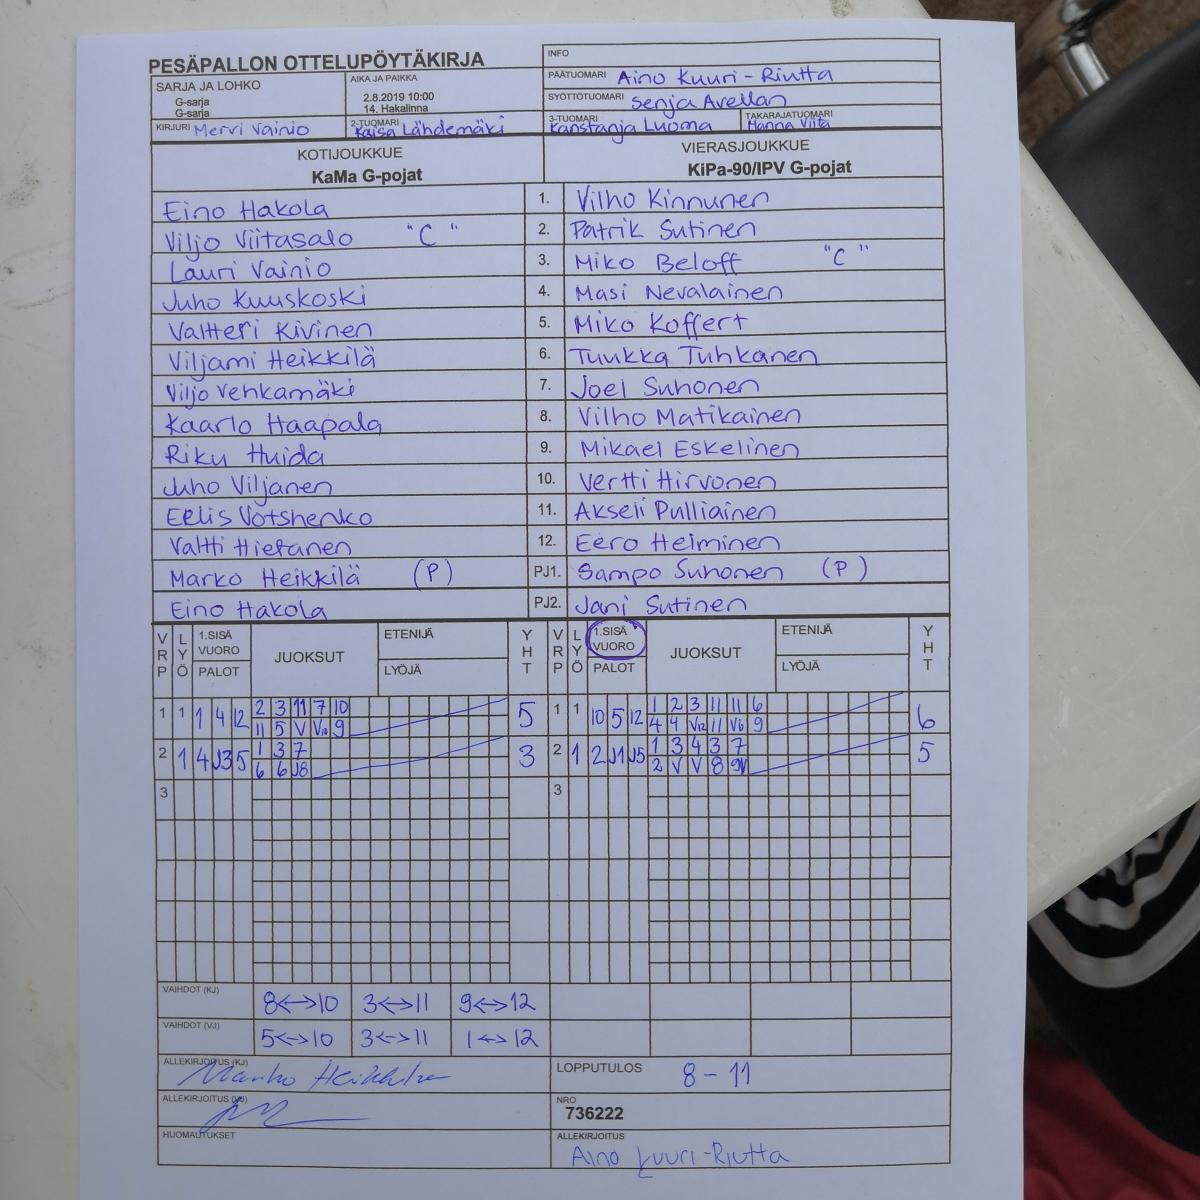 PESÄPALLON OTTELUPÖYTÄKIRJA
INFO
SARJA JA LOHKO
G-sarja
G-sarja
AIKA JA PAIKKA
2.8.2019 10:00
14. Hakalinna
PÄÄTUOMARI Aino Kuuri-Riutta
SYÖTTÖTUOMARI Senja Avellan
KIRJURI Mervi Vainio
2-TUOMARI Kaisa Lähdemäki
3-TUOMARI Kanstanja Luoma
TAKARAJATUOMARI Hanna Viita
KOTIJOUKKUE
KaMa G-pojat
VIERASJOUKKUE
KiPa-90/IPV G-pojat
Eino Hakola 1. Vilho Kinnunen
Viljo Viitasalo "C" 2. Patrik Sutinen
Lauri Vainio 3. Miko Beloff "C"
Juho Kuuskoski 4. Masi Nevalainen
Valtteri Kivinen 5. Miko Koffert
Viljami Heikkilä 6. Tuukka Tuhkanen
Viljo Vehkamäki 7. Joel Suhonen
Kaarlo Haapala 8. Vilho Matikainen
Riku Huida 9. Mikael Eskelinen
Juho Viljanen 10. Vertti Hirvonen
Eelis Votshenko 11. Akseli Pulliainen
Valtti Hietanen 12. Eero Heiminen
Marko Heikkilä (P) PJ1. Sampo Suhonen (P)
Eino Hakola PJ2. Jani Sutinen
VRP LYÖ 1.SISÄ VUORO PALOT JUOKSUT ETENIJÄ LYÖJÄ YHT VRP LYÖ 1.SISÄ VUORO PALOT JUOKSUT ETENIJÄ LYÖJÄ YHT
1 1 1 4 12 2 3 11 7 10 5 1 1 10 5 12 1 2 3 11 11 6 6
11 5 V V10 9 4 4 V12 11 V6 9
2 1 4 J3 5 1 3 7 3 2 1 2 J1 J5 1 3 4 3 7 5
6 6 J8 2 V V 8 9V
3 3
VAIHDOT (KJ) 8<->10 3<->11 9<->12
VAIHDOT (VJ) 5<->10 3<->11 1<->12
ALLEKIRJOITUS (KJ) Marko Heikkilä
LOPPUTULOS 8-11
ALLEKIRJOITUS (VJ)
NRO
736222
HUOMAUTUKSET
ALLEKIRJOITUS
Aino Kuuri-Riutta